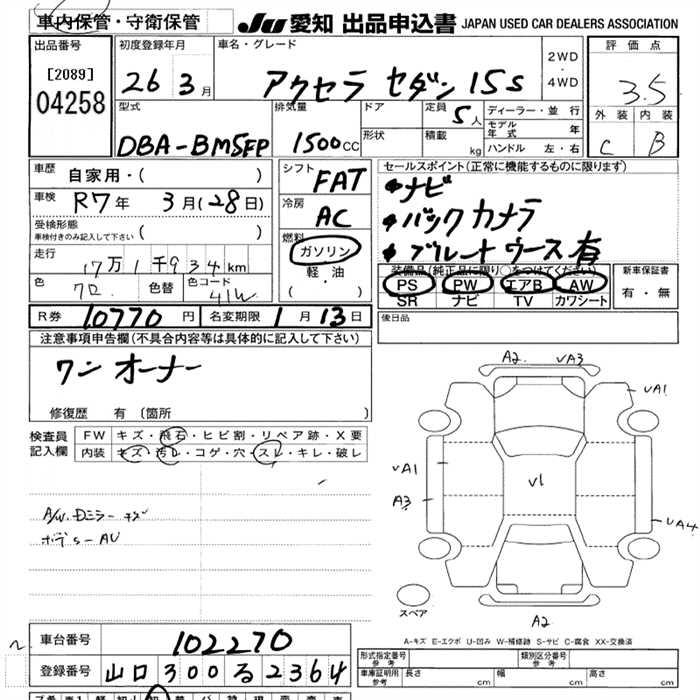 車内保管・守衛保管
JU 愛知 出品申込書 JAPAN USED CAR DEALERS ASSOCIATION
出品番号
[2089]
04258
初度登録年月
26 3月
車名・グレード
アクセラ セダン 15S
2WD
・
4WD
評価点
3.5
外装 内装
C B
型式
DBA-BM5FP
排気量
1500CC
ドア
形状
定員 5人
積載 kg
ディーラー・並行
モデル年式 年
ハンドル 左・右
車歴 自家用・( )
車検 R7年 3月(28日)
受検形態
車検付きのみ記入して下さい ( )
走行 17万1千934km
色 クロ 色替 色コード 41W
シフト FAT
冷房 AC
燃料
ガソリン
軽・油
( ・ )
セールスポイント(正常に機能するものに限ります)
ナビ
バックカメラ
有
装備品(純正品に限り○をつけてください)
PS PW エアB AW
SR ナビ TV カワシート
新車保証書
有・無
R券 10770円 名変期限 1月13日
後日品
注意事項申告欄(不具合内容等は具体的に記入して下さい)
ワンオーナー
修復歴 有 (箇所 )
検査員記入欄
FW キズ・飛石・ヒビ割・リペア跡・X要
内装 キズ・汚レ・コゲ・穴・スレ・キレ・破レ
A/W. Dミラーキズ
A2 vA3
vA1
vA1
v1
A3
vA4
A2
スペア
A-キズ E-エクボ U-凹み W-補修跡 S-サビ C-腐食 XX-交換済
車台番号 102270
登録番号 山口 300 る 2364
形式指定番号 参考
類別区分番号 参考
車庫証明用 参考 長さ cm 幅 cm 高さ cm